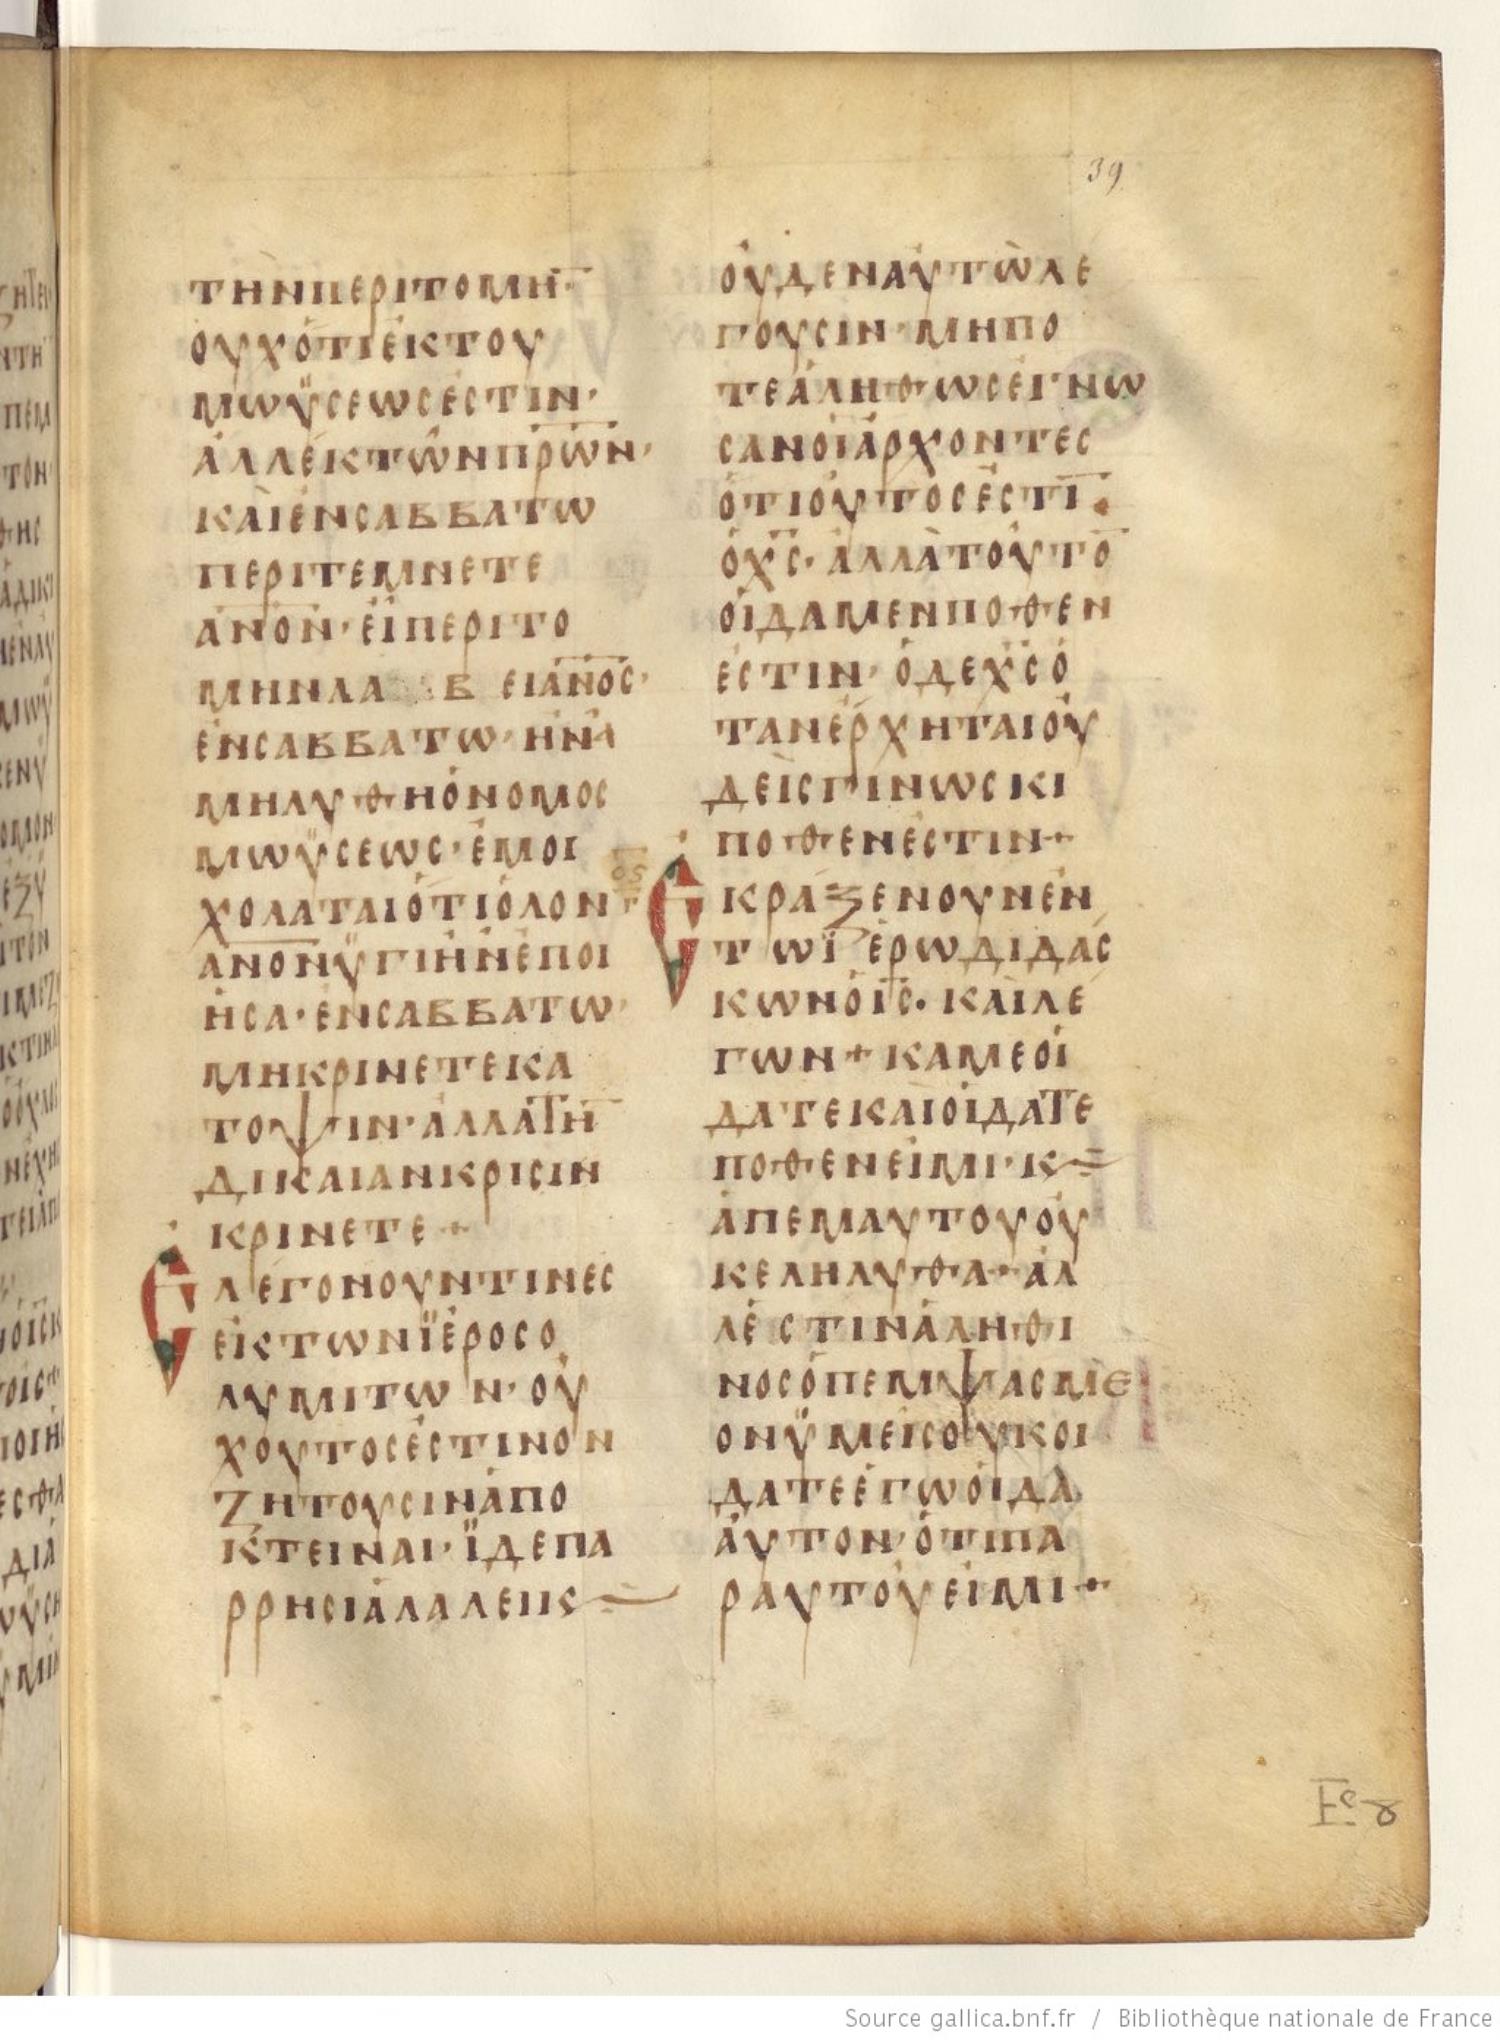 39
ΤΗΝΠΕΡΙΤΟΜΗ̅·
ΟΥΧΟΤΙΕΚΤΟΥ
ΜΩΫΣΕΩΣΕΣΤΙΝ·
ΑΛΛΕΚΤΩΝΠ̅Ρ̅Ω̅Ν̅·
ΚΑΙΕΝΣΑΒΒΑΤΩ
ΠΕΡΙΤΕΜΝΕΤΕ
Α̅Ν̅Ο̅Ν̅·ΕΙΠΕΡΙΤΟ
ΜΗΝΛΑ Β ΕΙΑ̅Ν̅Ο̅Σ̅·
ΕΝΣΑΒΒΑΤΩ·ΗΝΑ
ΜΗΛΥΘΗΟΝΟΜΟΣ
ΜΩΫΣΕΩΣ·ΕΜΟΙ
ΧΟΛΑΤΑΙΟΤΙΟΛΟΝ
Α̅Ν̅Ο̅Ν̅ΫΓΙΗΝΕΠΟΙ
ΗΣΑ·ΕΝΣΑΒΒΑΤΩ·
ΜΗΚΡΙΝΕΤΕΚΑ
ΤΟΨΙΝ·ΑΛΛΑΤΗ̅
ΔΙΚΑΙΑΝΚΡΙΣΙΝ
ΚΡΙΝΕΤΕ+
ΕΛΕΓΟΝΟΥΝΤΙΝΕΣ
ΕΙΚΤΩΝΪΕΡΟΣΟ
ΛΥΜΙΤΩΝ·ΟΥ
ΧΟΥΤΟΣΕΣΤΙΝΟΝ
ΖΗΤΟΥΣΙΝΑΠΟ
ΚΤΕΙΝΑΙ·ΪΔΕΠΑ
ΡΡΗΣΙΑΛΑΛΕΙΚ
ΟΥΔΕΝΑΥΤΩΛΕ
ΓΟΥΣΙΝ·ΜΗΠΟ
ΤΕΑΛΗΘΩΣΕΓΝΩ
ΣΑΝΟΙΑΡΧΟΝΤΕΣ
ΟΤΙΟΥΤΟΣΕΣΤΙ̅·
ΟΧ̅Σ̅·ΑΛΛΑΤΟΥΤΟ̅
ΟΙΔΑΜΕΝΠΟΘΕΝ
ΕΣΤΙΝ·ΟΔΕΧ̅Σ̅Ο
ΤΑΝΕΡΧΗΤΑΙΟΥ
ΔΕΙΣΓΙΝΩΣΚΙ
ΠΟΘΕΝΕΣΤΙΝ+
ΕΚΡΑΞΕΝΟΥΝΕΝ
ΤΩΪΕΡΩΔΙΔΑΣ
ΚΩΝΟΙ̅Σ̅·ΚΑΙΛΕ
ΓΩΝ+ΚΑΜΕΟΙ
ΔΑΤΕΚΑΙΟΙΔΑΤΕ
ΠΟΘΕΝΕΙΜΙ·Κ
ΑΠΕΜΑΥΤΟΥΟΥ
ΚΕΛΗΛΥΘΑ·ΑΛ
ΛΕΣΤΙΝΑΛΗΘΙ
ΝΟΣΟΠΕΜΨΑΣΜΕ
ΟΝΫΜΕΙΣΟΥΚΟΙ
ΔΑΤΕΕΓΩΟΙΔΑ
ΑΥΤΟΝ·ΟΤΙΠΑ
ΡΑΥΤΟΥΕΙΜΙ+
Source gallica.bnf.fr / Bibliothèque nationale de France